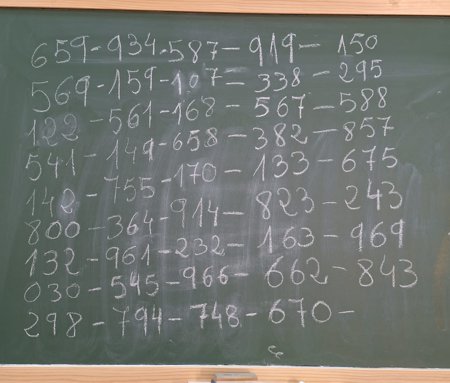 659-934-587-919-150
569-159-107-338-295
122-561-168-567-588
541-149-658-382-857
142-755-170-133-675
800-364-914-823-243
132-961-232-163-969
030-545-966-662-843
298-794-748-670-